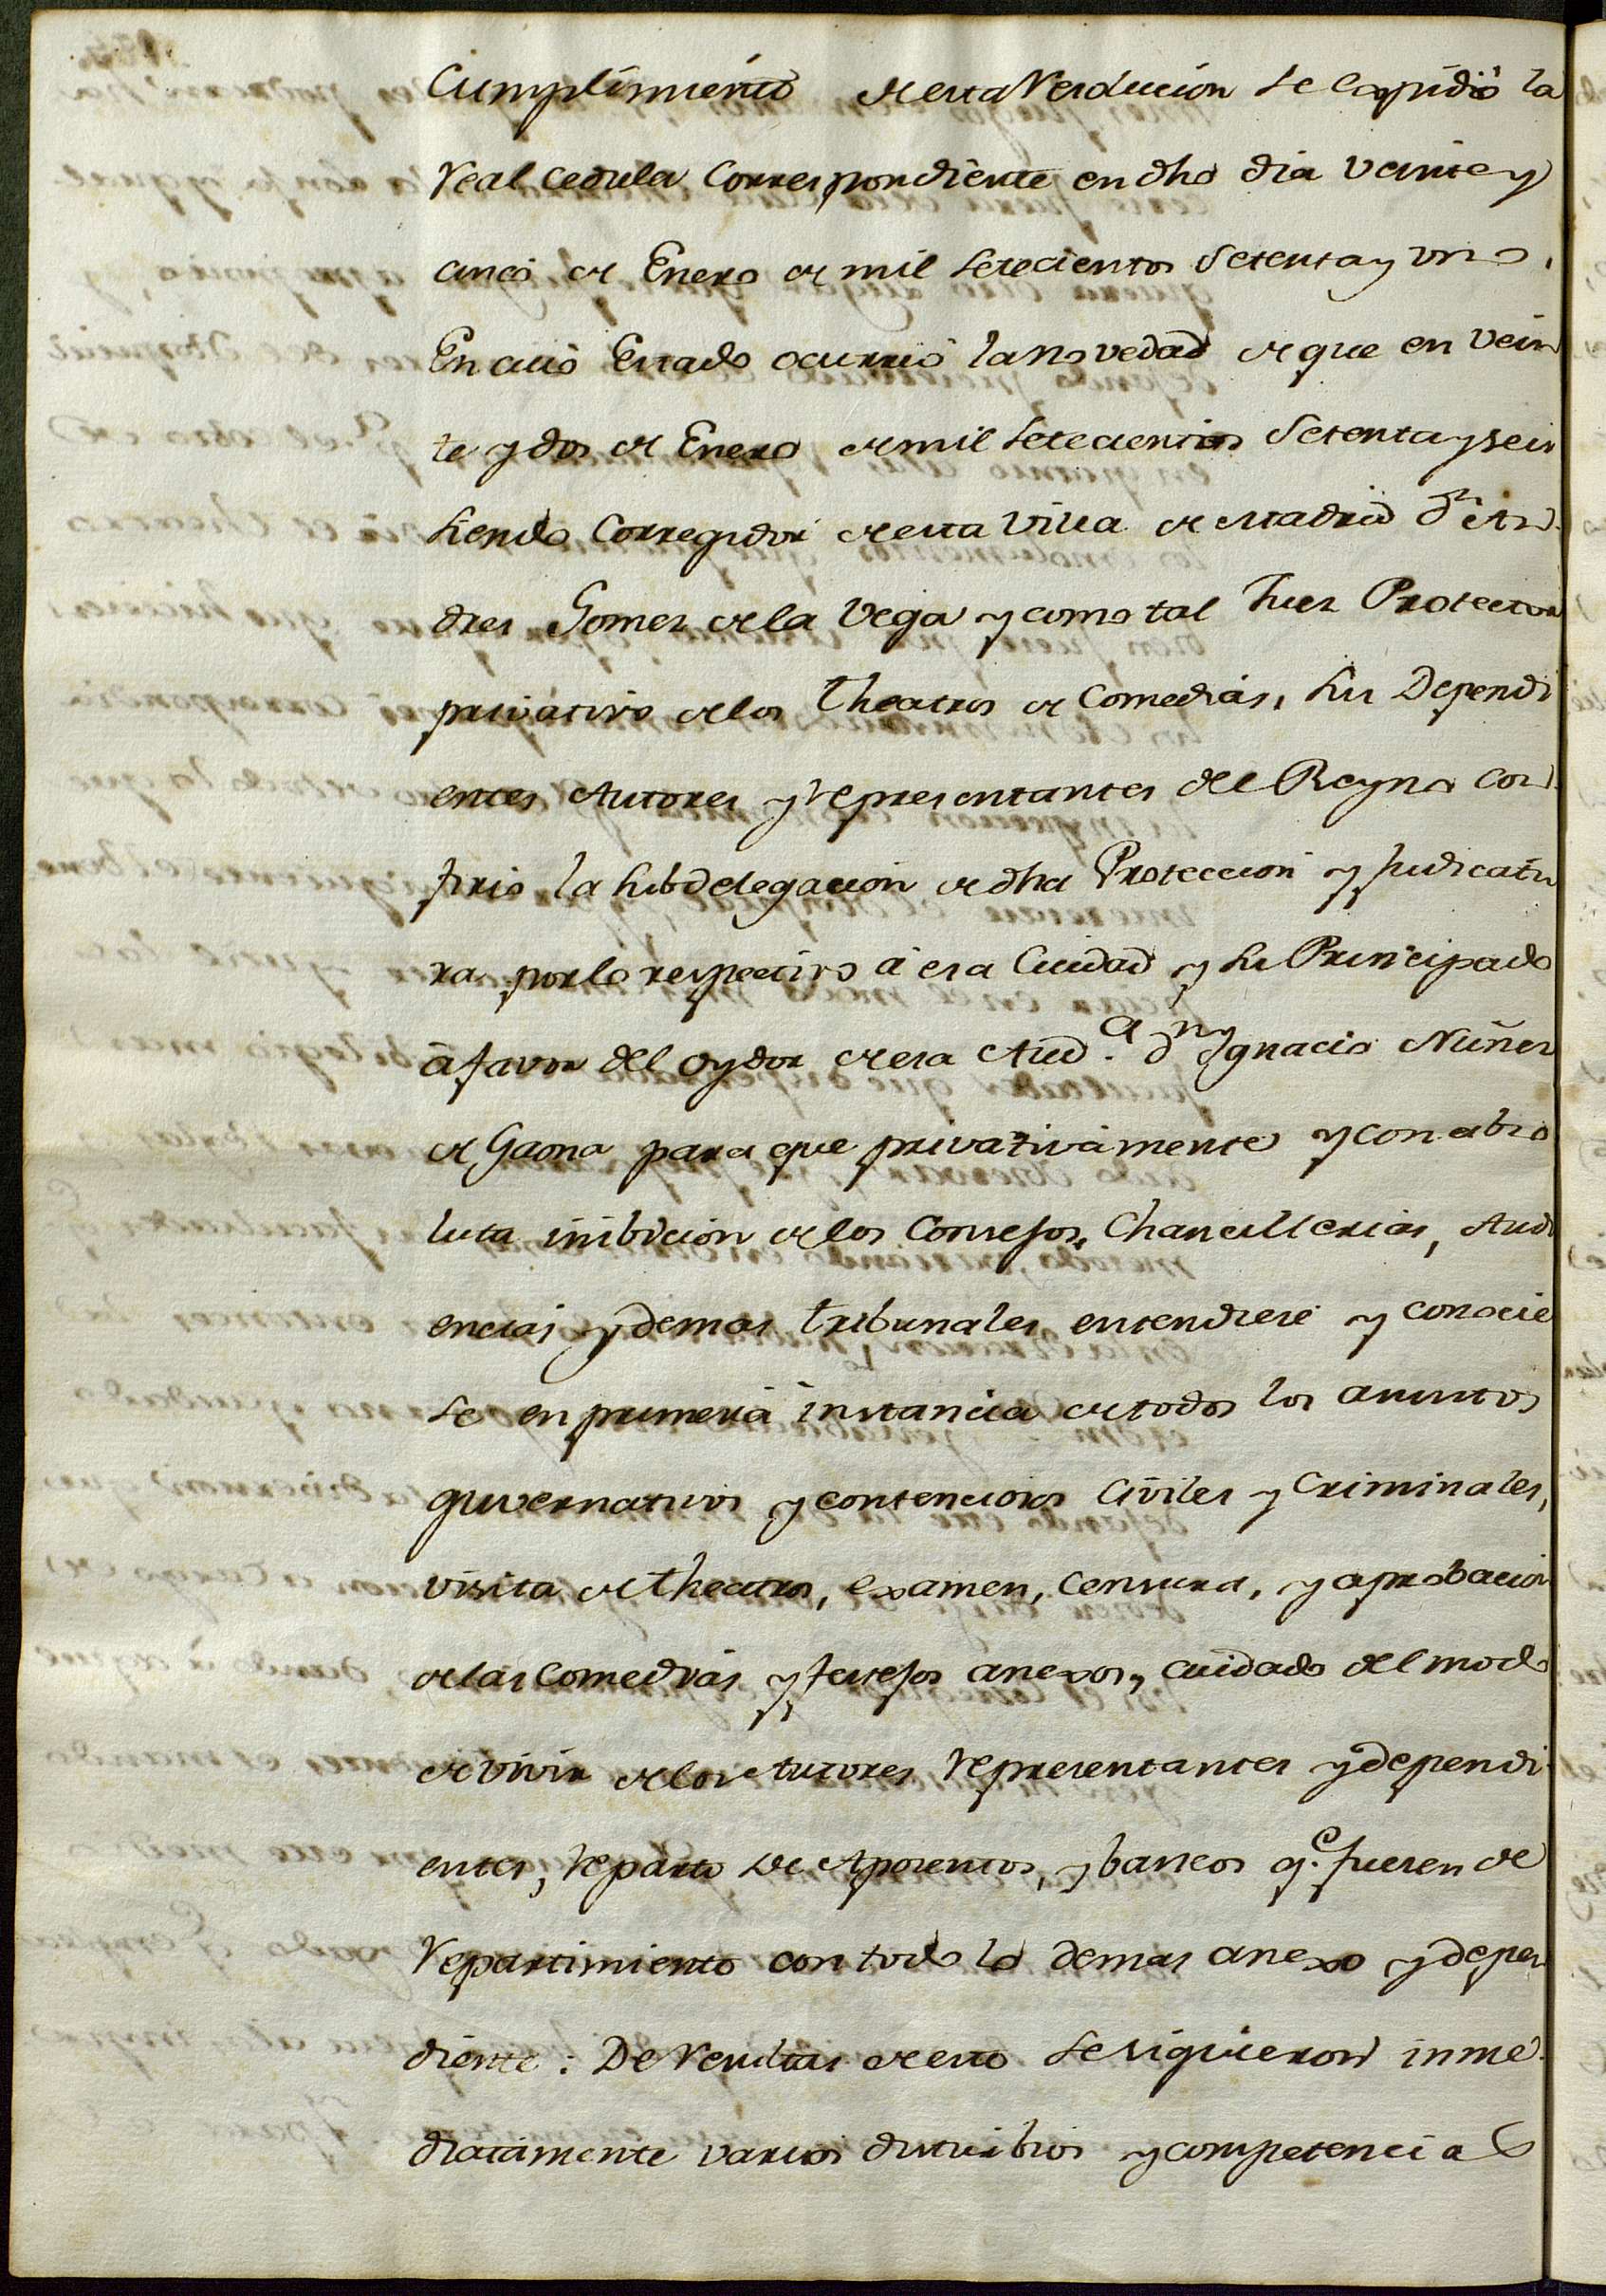 Cumplimiento de esta Resolucion se expidió la
Real Cedula Correspondiente en dho dia veinte y
cinco de Enero de mil setecientos setenta y uno.
En cuio Estado ocurrió la novedad de que en vein
te y dos de Enero de mil setecientos setenta y seis
siendo Corregidor de esta Villa de Madrid Dn An
dres Gomez de la Vega y como tal Juez Protector
privativo de los Theatros de Comedias, sus Dependi
entes Autores y representantes del Reyno con
firio la subdelegacion de dha Proteccion y Judicatu
ra por lo respectivo á esa Ciudad y su Principado
á favor del oydor de esa Aud.a Dn Ygnacio Nuñez
de Gaona para que privativamente y con abso
luta inibicion de los Consejos, Chancillerias, Audi
encias y demas tribunales entendiese y conocie
se en primera instancia de todos los asuntos
guvernativos y contenciosos Civiles y Criminales,
visita de theatros, examen, Censura, y aprobacion
de las Comedias y festejos anexos, cuidado del modo
de vivir de los Autores representantes y dependi
entes, reparto de Aposentos, y bancos q.e fuesen de
Repartimiento con todo lo demas anexo y depen
diente: De resultas de esto se siguieron inme
diatamente varios disturbios y competencias